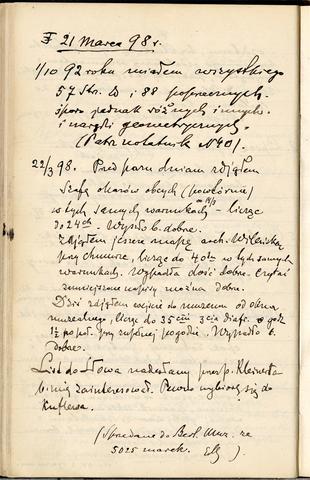 21 Marca 98 r.
1/10 92 roku miałem wszystkiego
57 str. i 88 poprzecznych.
sporo jednak różnych innych
i narzędzi geometrycznych
(Patrz notatnik № 40).
22/3 98. Przed paru dniami zdjąłem
szafę okazów obcych (powtórnie)
w tych samych warunkach – licząc
do 24 ch. Wyszło b. dobrze.
Zdjąłem jeszcze mapę arch. Wileńską
przy chmurze, licząc do 40 w tych samych
warunkach. Wypadła dość dobrze. Czytać
zmniejszone napisy można dobrze.
Dziś zdjąłem wejście do muzeum od okna
muzealnego, licząc do 35 diafr. o godz
1½ popoł. przy zupełnej pogodzie. Wypadło b.
dobrze.
List do Słowa nadesłany przez p. Kleinerta
b. mię zainteresował. Pewno wybiorę się do
(Sprzedane do Berl. Muz. za
5025 marek. )